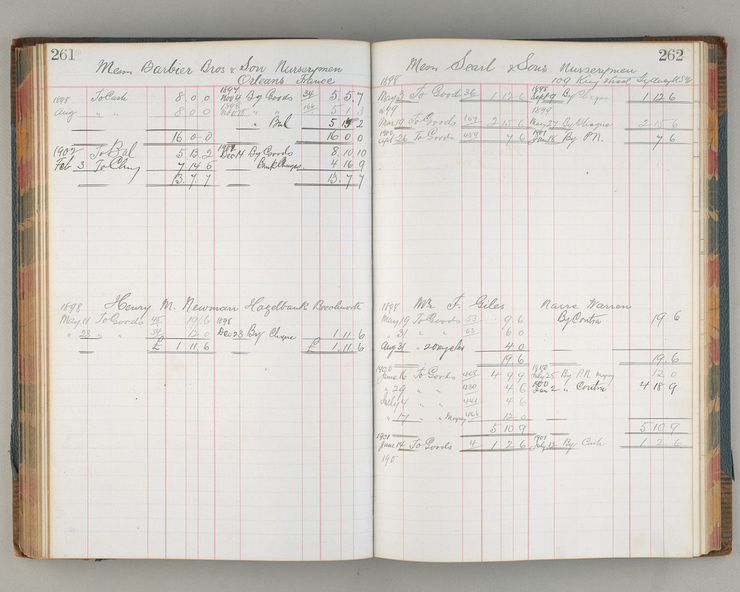 261
Messrs Barbier Bros & Son Nurserymen
Orleans France
1898 To Cash 8 . 0 . 0 Nov 4 By Goods 34 5 . 5 . 7
Aug " " 8 . 0 . 0 166 5
" Bal 5
16 0 0 16 0 0
1902 To Bal 5 13 2 Dec 14 By Goods 8 . 10 10
Feb 3 To Chq 7 14 5 Bank Charges 4 16 9
13 . 7 7 13 . 7 7
1898 Henry M. Newman Hazelbank
May 11 To Goods 19 6 1898
" 23 " " 12 0 Dec 23 By Cheque 1 . 11 6
£ 1 11 6 £ 1 . 11 . 6
262
Messrs Searl & Sons Nurserymen
1898 109 King Street Sydney N.S.W.
May 3 To Goods 36 1 12 6 1898 Sept 9 By Cheque 1 12 6
To Goods 2 15 6 May 27 By Cheque 2 15 6
26 To Goods 7 6 By P.N. 7 6
1898 Mr F. Giles Narre Warren
May 19 To Goods 53 9 6 By Contra 19 6
" 31 " " 63 6 0
Aug 31 " 4 0
19 6 19 6
1900
June 16 To Goods 4 9 9 July 25 By P.N. 12 0
" 29 " " 4 6 " Contra 4 18 9
July 4 " " 4 6
" 17 " " 12 0
5 10 9 5 10 9
1901 1901
June 14 To Goods 1 2 6 July 12 By Cash 1 2 6
190